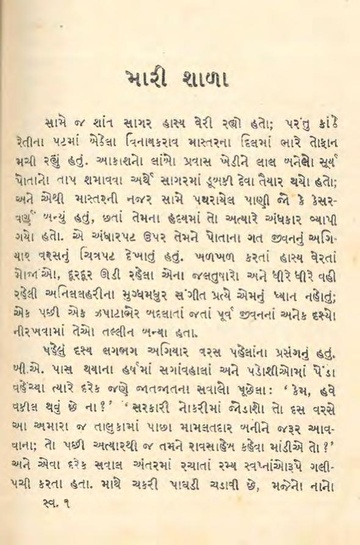 મારી શાળા
સામે જ શાંત સાગર હાસ્ય વેરી રહ્યો હતો; પરંતુ કાંઠે
રેતીના પટમાં બેઠેલા વિનાયકરાવ માસ્તરના દિલમાં ભારે તોફાન
મચી રહ્યું હતું. આકાશનો લાંબો પ્રવાસ ખેડીને લાલ બનેલો સૂર્ય
પોતાનો તાપ શમાવવા અર્થે સાગરમાં ડૂબકી દેવા તૈયાર થયો હતો;
અને એથી માસ્તરની નજર સામે પથરાયેલ પાણી જો કે કેસર-
વર્ણું બન્યું હતું, છતાં તેમના હૃદયમાં તો અત્યારે અંધકાર વ્યાપી
ગયો હતો. એ અંધારપટ ઉપર તેમને પોતાના ગત જીવનનું અગિ-
યાર વરસનું ચિત્રપટ દેખાતું હતું. ખળખળ કરતાં હાસ્ય વેરતાં
મોજાંઓ, દૂરદૂર ઊડી રહેલા એના જલતુષારો અને ધીરે ધીરે વહી
રહેલી અનિલલહરીના મુગ્ધમધુર સંગીત પ્રત્યે એમનું ધ્યાન નહોતું;
એક પછી એક ઝપાટાભેર બદલાતાં જતાં પૂર્વ જીવનનાં અનેક દૃશ્યો
નીરખવામાં તેઓ તલ્લીન બન્યા હતા.
પહેલું દૃશ્ય લગભગ અગિયાર વરસ પહેલાંના પ્રસંગનું હતું.
બી.એ. પાસ થયાના હર્ષમાં સગાંવહાલાં અને પડોશીઓમાં પેંડા
વહેંચ્યા ત્યારે દરેક જણે જાતજાતના સવાલો પૂછેલા: ' કેમ, હવે
વકીલ થવું છે ના ? ' ' સરકારી નોકરીમાં જોડાશો તો દસ વરસે
આ અમારા જ તાલુકામાં પાછા મામલતદાર બનીને જરૂર આવ-
વાના; તો પછી અત્યારથી જ તમને રાવસાહેબ કહેવા માંડીએ તો ? '
અને એવા દરેક સવાલ અંતરમાં રચાતાં રમ્ય સ્વપ્નાંઓરૂપે ગલી-
પચી કરતા હતા. માથે ચકરી પાઘડી ચડાવી છે, મજેનો નાનો
સ્વ. ૧